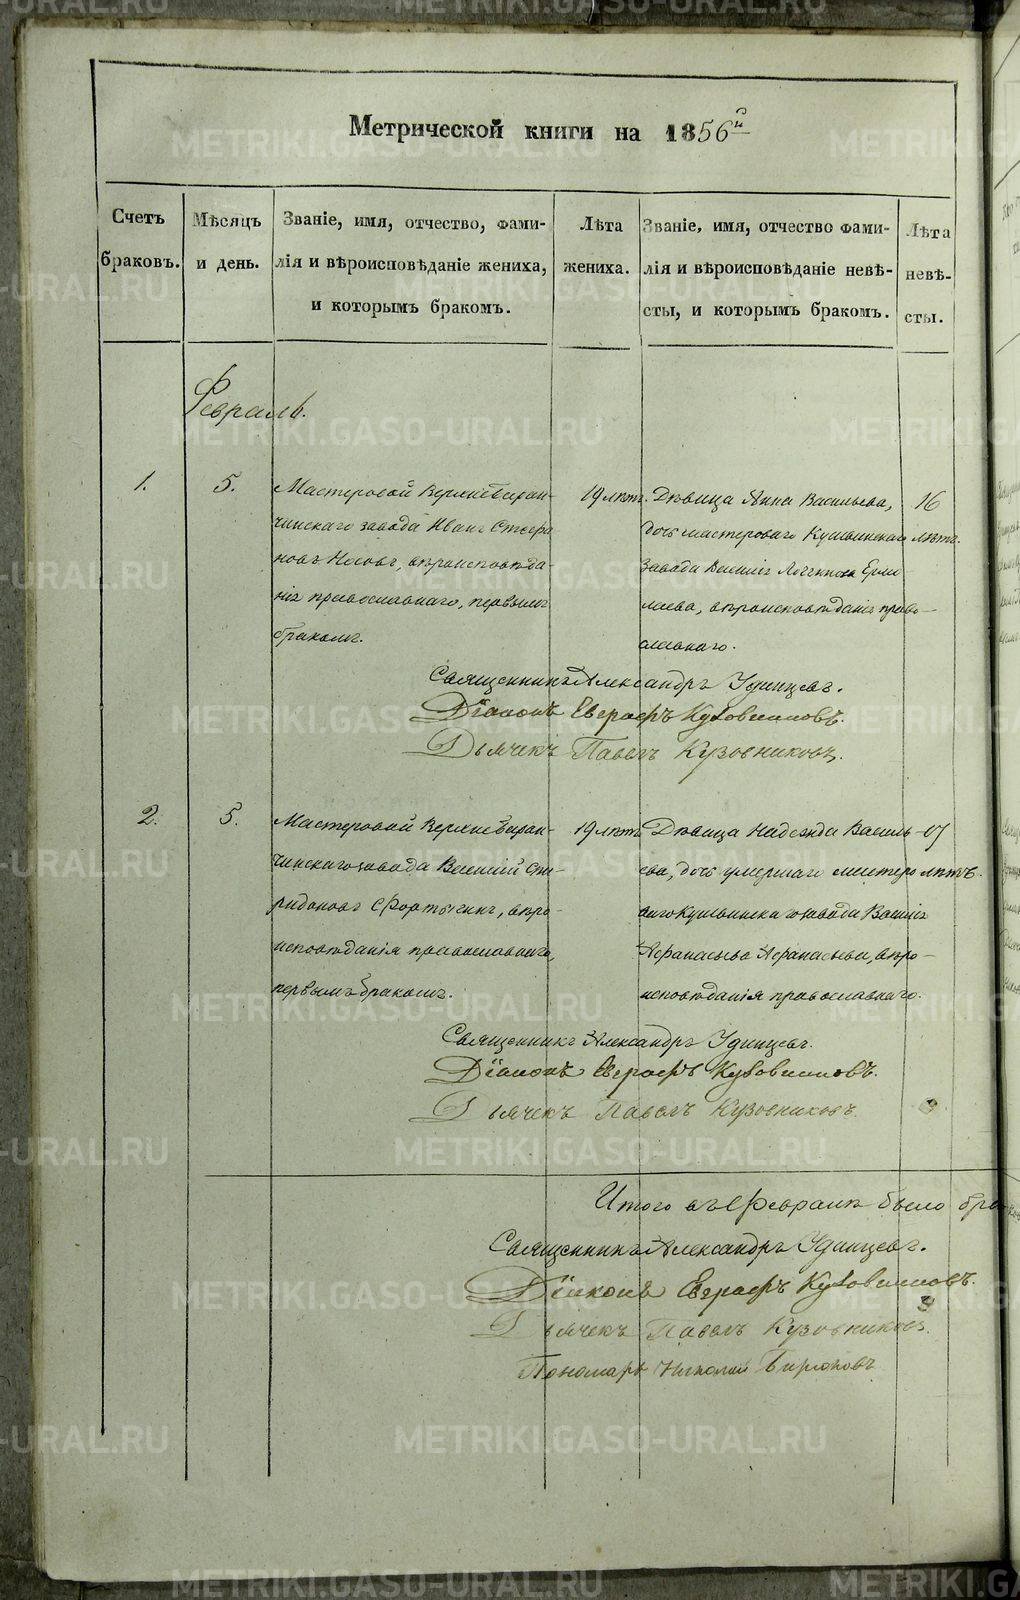 Метрической книги на 1856й
Счетъ браковъ.
Мѣсяцъ и день.
Званіе, имя, отчество, фами-
лія и вѣроисповѣданіе жениха,
и которымъ бракомъ.
Лѣта жениха.
Званіе, имя, отчество фами-
лія и вѣроисповѣданіе невѣ-
сты, и которымъ бракомъ.
Лѣта невѣ-
сты.
Февраль.
1.
5.
Мастеровой Верхнебаран-
чинскаго завода Иванъ Стефа
новъ Носовъ, вѣроисповѣда-
нія православнаго, первымъ
бракомъ.
19 лѣтъ.
Дѣвица Анна Васильева,
дочь мастероваго Кушвинскаго
завода Василія Логгинова Ерми-
лаева, вѣроисповѣданія право-
славнаго.
16
лѣтъ.
Священникъ Александръ Удинцевъ.
Діаконъ Евграфъ Кузовниковъ.
Дьячекъ Павелъ Кузовниковъ.
2.
5.
Мастеровой Верхнебаран-
чинскаго завода Василій Спи-
ридоновъ вѣро-
исповѣданія православнаго,
первымъ бракомъ.
19 лѣтъ
Дѣвица Надежда Василь-
ева, дочь умершаго мастеро
ваго Кушвинскаго завода Василія
Афанасьева Афанасьева, вѣро-
исповѣданія православнаго.
лѣтъ.
Священникъ Александръ Удинцевъ.
Діаконъ Евграфъ Кузовниковъ.
Дьячекъ Павелъ Кузовниковъ.
Итого въ Февралѣ было бра
Священникъ Александръ Удинцевъ.
Діаконъ Евграфъ Кузовниковъ.
Дьячекъ Павелъ Кузовниковъ.
Пономарь Николай Бирюковъ
METRIKI.GASO-URAL.RU